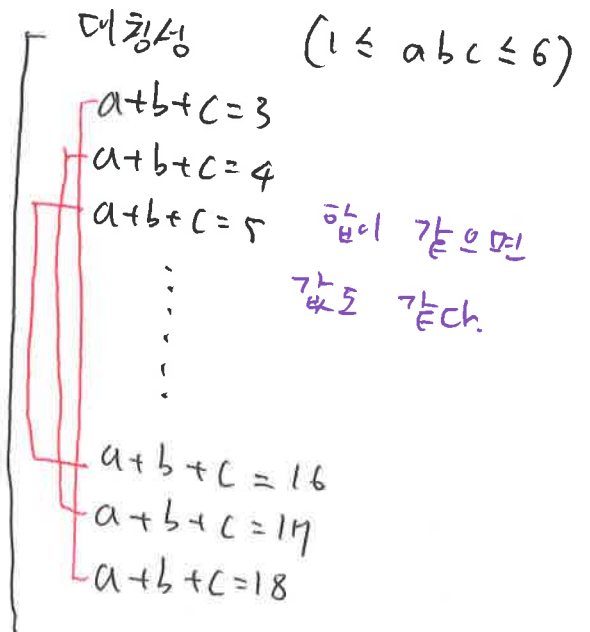 대칭성 (1 ≤ a b c ≤ 6)
a+b+c=3
a+b+c=4
a+b+c=5 합이 같으면
값도 같다.
a+b+c=16
a+b+c=17
a+b+c=18